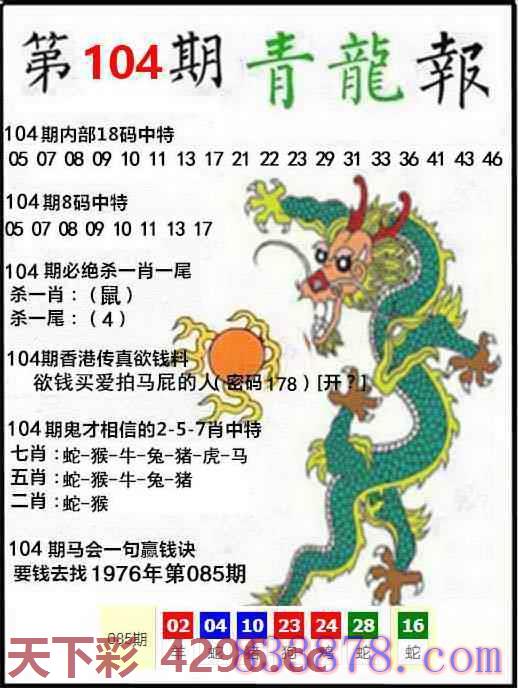 第104期 青龍報
104期内部18码中特
05 07 08 09 10 11 13 17 21 22 23 29 31 33 36 41 43 46
104期8码中特
05 07 08 09 10 11 13 17
104期必绝杀一肖一尾
杀一肖：（鼠）
杀一尾：（4）
104期香港传真欲钱料
欲钱买爱拍马屁的人(密码178）[开？]
104期鬼才相信的2-5-7肖中特
七肖：蛇-猴-牛-兔-猪-虎-马
五肖：蛇-猴-牛-兔-猪
二肖：蛇-猴
104期马会一句赢钱诀
要钱去找1976年第085期
085期 02 04 10 23 24 28 16
羊 蛇 狗 鸡 蛇 蛇
天下彩 4296.cc